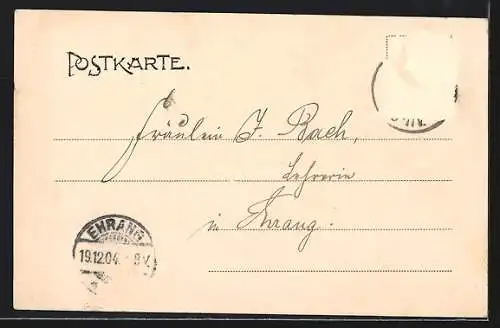 POSTKARTE.
Fräulein J. Bach,
Lehrerin
in Ehrang.
EHRANG
19.12.04.